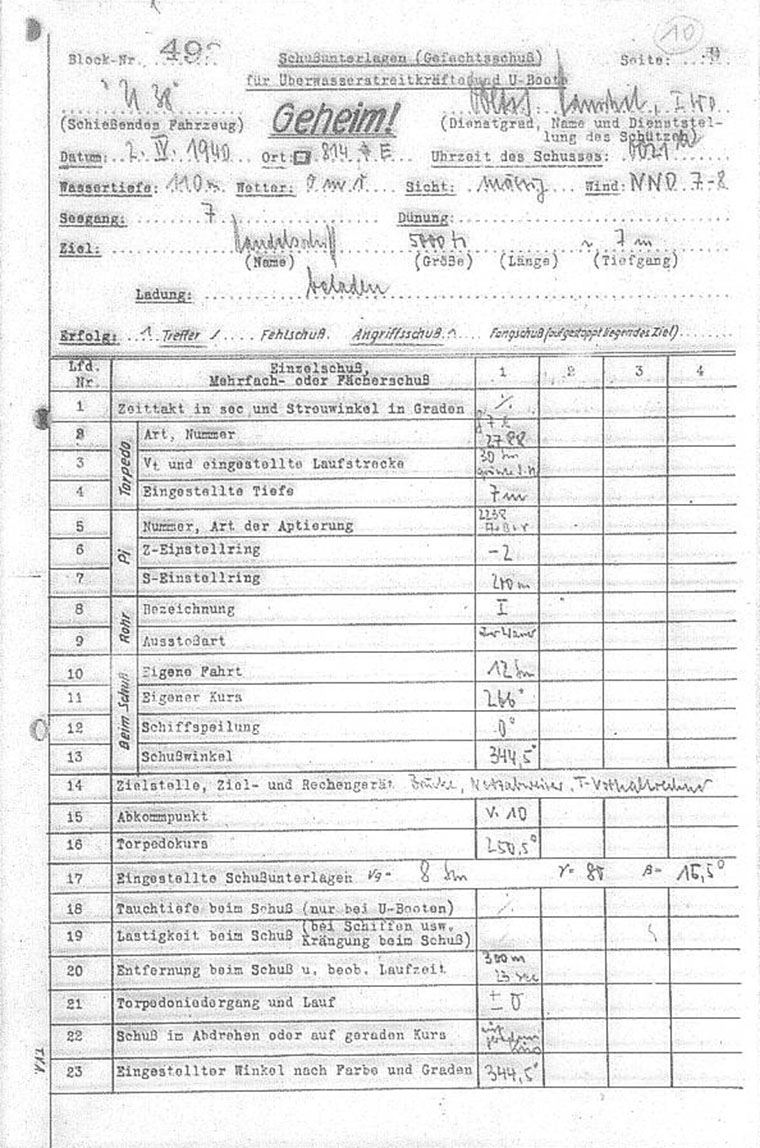 10
Block-Nr. 49 Schußunterlagen (Gefechtsschuß) Seite:
für Überwasserstreitkräfte und U-Boote
"U 38"
Geheim!
(Schießendes Fahrzeug) (Dienstgrad, Name und Dienststel-
lung des Schützen)
Datum: 2. IV. 1940 Ort: Uhrzeit des Schusses: 0021
Wassertiefe: 110 m Wetter: Sicht: mäßig Wind: NNO 7-8
Seegang: 7 Dünung:
Ziel: Handelsschiff 5000 ~ 7 m
(Name) (Größe) (Länge) (Tiefgang)
Ladung: beladen
Erfolg: 1 Treffer / Fehlschuß. Angriffsschuß. Fangschuß (auf gestoppt liegendes Ziel)
Lfd. Nr. Einzelschuß, Mehrfach- oder Fächerschuß 1 2 3 4
1 Zeittakt in sec und Streuwinkel in Graden
Torpedo
2 Art, Nummer 2788
3 Vt und eingestellte Laufstrecke 30
4 Eingestellte Tiefe 7 m
Pi
5 Nummer, Art der Aptierung 2238
6 Z-Einstellring -2
7 S-Einstellring 240 m
Rohr
8 Bezeichnung I
9 Ausstoßart
Beim Schuß
10 Eigene Fahrt 12 sm
11 Eigener Kurs 266°
12 Schiffspeilung 0°
13 Schußwinkel 344,5°
14 Zielstelle, Ziel- und Rechengerät Brücke, Netzabweiser, T-Vorhaltrechner
15 Abkommpunkt v. 10
16 Torpedokurs 250,5°
17 Eingestellte Schußunterlagen Vg= 8 sm γ= 80 β= 15,5°
18 Tauchtiefe beim Schuß (nur bei U-Booten)
19 Lastigkeit beim Schuß (bei Schiffen usw. Krängung beim Schuß)
20 Entfernung beim Schuß u. beob. Laufzeit 300 m 23 sec
21 Torpedoniedergang und Lauf ± 0
22 Schuß im Abdrehen oder auf geraden Kurs
23 Eingestellter Winkel nach Farbe und Graden 344,5°